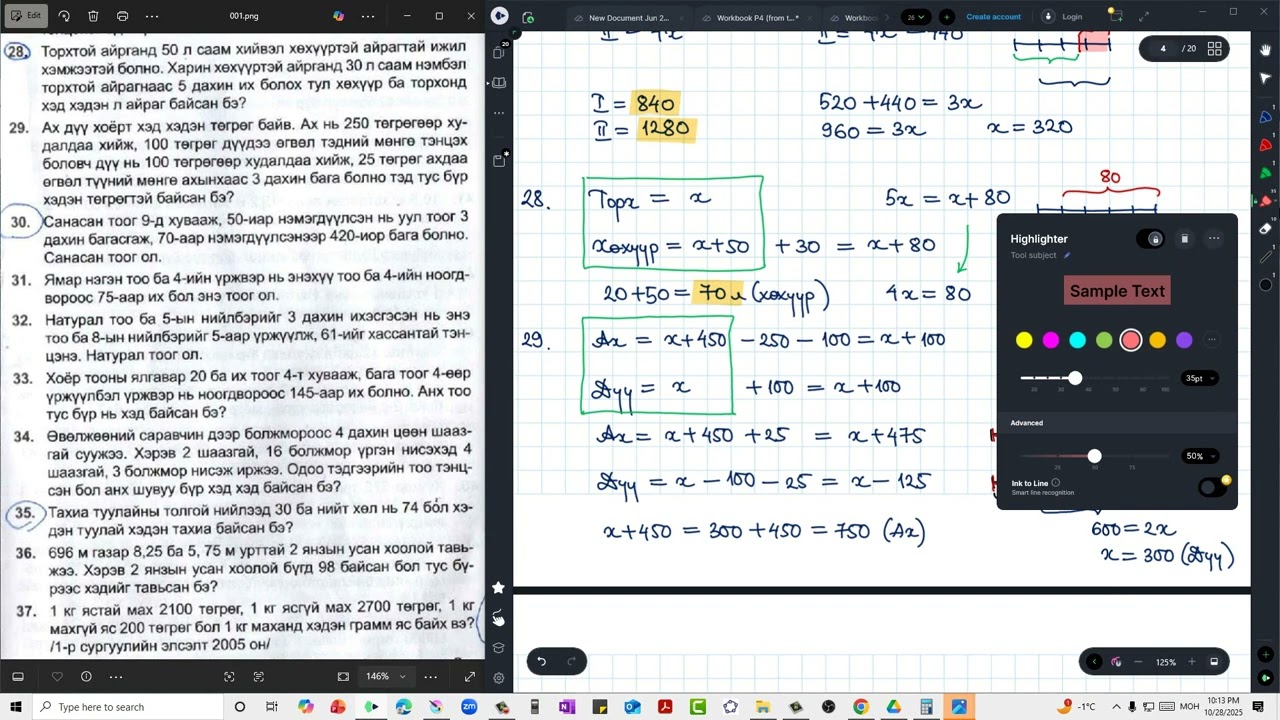 Edit
001.png
28. Торхтой айрганд 50 л саам хийвэл хөхүүртэй айрагтай ижил
хэмжээтэй болно. Харин хөхүүртэй айрганд 30 л саам нэмбэл
торхтой айрагнаас 5 дахин их болох тул хөхүүр ба торхонд
хэд хэдэн л айраг байсан бэ?
29. Ах дүү хоёрт хэд хэдэн төгрөг байв. Ах нь 250 төгрөгөөр ху-
далдаа хийж, 100 төгрөг дүүдээ өгвөл тэдний мөнгө тэнцэх
боловч дүү нь 100 төгрөгөөр худалдаа хийж, 25 төгрөг ахдаа
өгвөл түүний мөнгө ахынхаас 3 дахин бага болно тэд тус бүр
хэдэн төгрөгтэй байсан бэ?
30. Санасан тоог 9-д хувааж, 50-иар нэмэгдүүлсэн нь уул тоог 3
дахин багасгаж, 70-аар нэмэгдүүлсэнээр 420-иор бага болно.
Санасан тоог ол.
31. Ямар нэгэн тоо ба 4-ийн үржвэр нь энэхүү тоо ба 4-ийн ноогд-
вороос 75-аар их бол энэ тоог ол.
32. Натурал тоо ба 5-ын нийлбэрийг 3 дахин ихэсгэсэн нь энэ
тоо ба 8-ын нийлбэрийг 5-аар үржүүлж, 61-ийг хассантай тэн-
цэнэ. Натурал тоог ол.
33. Хоёр тооны ялгавар 20 ба их тоог 4-т хувааж, бага тоог 4-өөр
үржүүлбэл үржвэр нь ноогдвороос 145-аар их болно. Анх тоо
тус бүр нь хэд байсан бэ?
34. Өвөлжөөний саравчин дээр болжмороос 4 дахин цөөн шааз-
гай суужээ. Хэрэв 2 шаазгай, 16 болжмор үргэн нисэхэд 4
шаазгай, 3 болжмор нисэж иржээ. Одоо тэдгээрийн тоо тэнц-
сэн бол анх шувуу бүр хэд хэд байсан бэ?
35. Тахиа туулайны толгой нийлээд 30 ба нийт хөл нь 74 бол хэ-
дэн туулай хэдэн тахиа байсан бэ?
36. 696 м газар 8,25 ба 5, 75 м урттай 2 янзын усан хоолой тавь-
жээ. Хэрэв 2 янзын усан хоолой бүгд 98 байсан бол тус бү-
рээс хэдийг тавьсан бэ?
37. 1 кг ястай мах 2100 төгрөг, 1 кг ясгүй мах 2700 төгрөг, 1 кг
махгүй яс 200 төгрөг бол 1 кг маханд хэдэн грамм яс байх вэ?
/1-р сургуулийн элсэлт 2005 он/
146%
New Document Jun 2...
Workbook P4 (from t...*
Workboo
26
Create account
Login
4 / 20
I = 840
II = 1280
520 + 440 = 3x
960 = 3x x = 320
80
28. Торх = x
хөхүүр = x+50 + 30 = x + 80
5x = x + 80
20+50 = 70 л (хөхүүр) 4x = 80
29. Ах = x+450 - 250 - 100 = x + 100
Дүү = x + 100 = x + 100
Ах = x + 450 + 25 = x + 475
Дүү = x - 100 - 25 = x - 125
x + 450 = 300 + 450 = 750 (Ах)
600 = 2x
x = 300 (Дүү)
Highlighter
Tool subject
Sample Text
35pt
Advanced
50%
Ink to Line
Smart line recognition
125%
Type here to search
-1°C
МОН
10:13 PM
10/28/2025